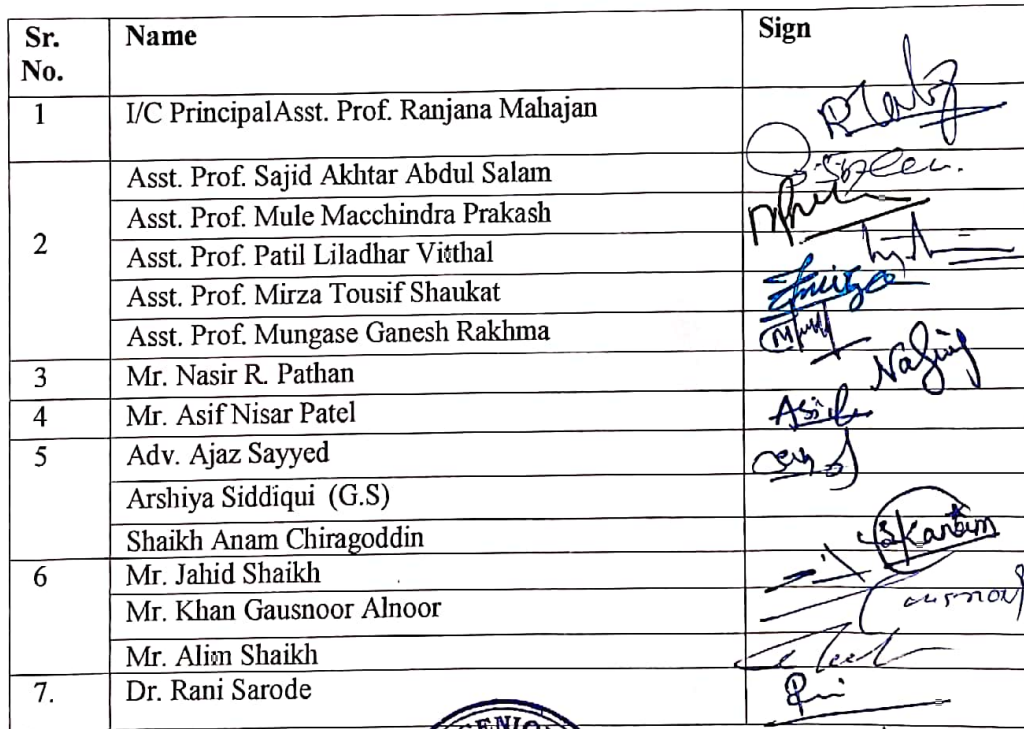 Sr. No. Name Sign
1 I/C PrincipalAsst. Prof. Ranjana Mahajan
2 Asst. Prof. Sajid Akhtar Abdul Salam
Asst. Prof. Mule Macchindra Prakash
Asst. Prof. Patil Liladhar Vitthal
Asst. Prof. Mirza Tousif Shaukat
Asst. Prof. Mungase Ganesh Rakhma
3 Mr. Nasir R. Pathan
4 Mr. Asif Nisar Patel
5 Adv. Ajaz Sayyed
Arshiya Siddiqui (G.S)
Shaikh Anam Chiragoddin
6 Mr. Jahid Shaikh
Mr. Khan Gausnoor Alnoor
Mr. Alim Shaikh
7. Dr. Rani Sarode